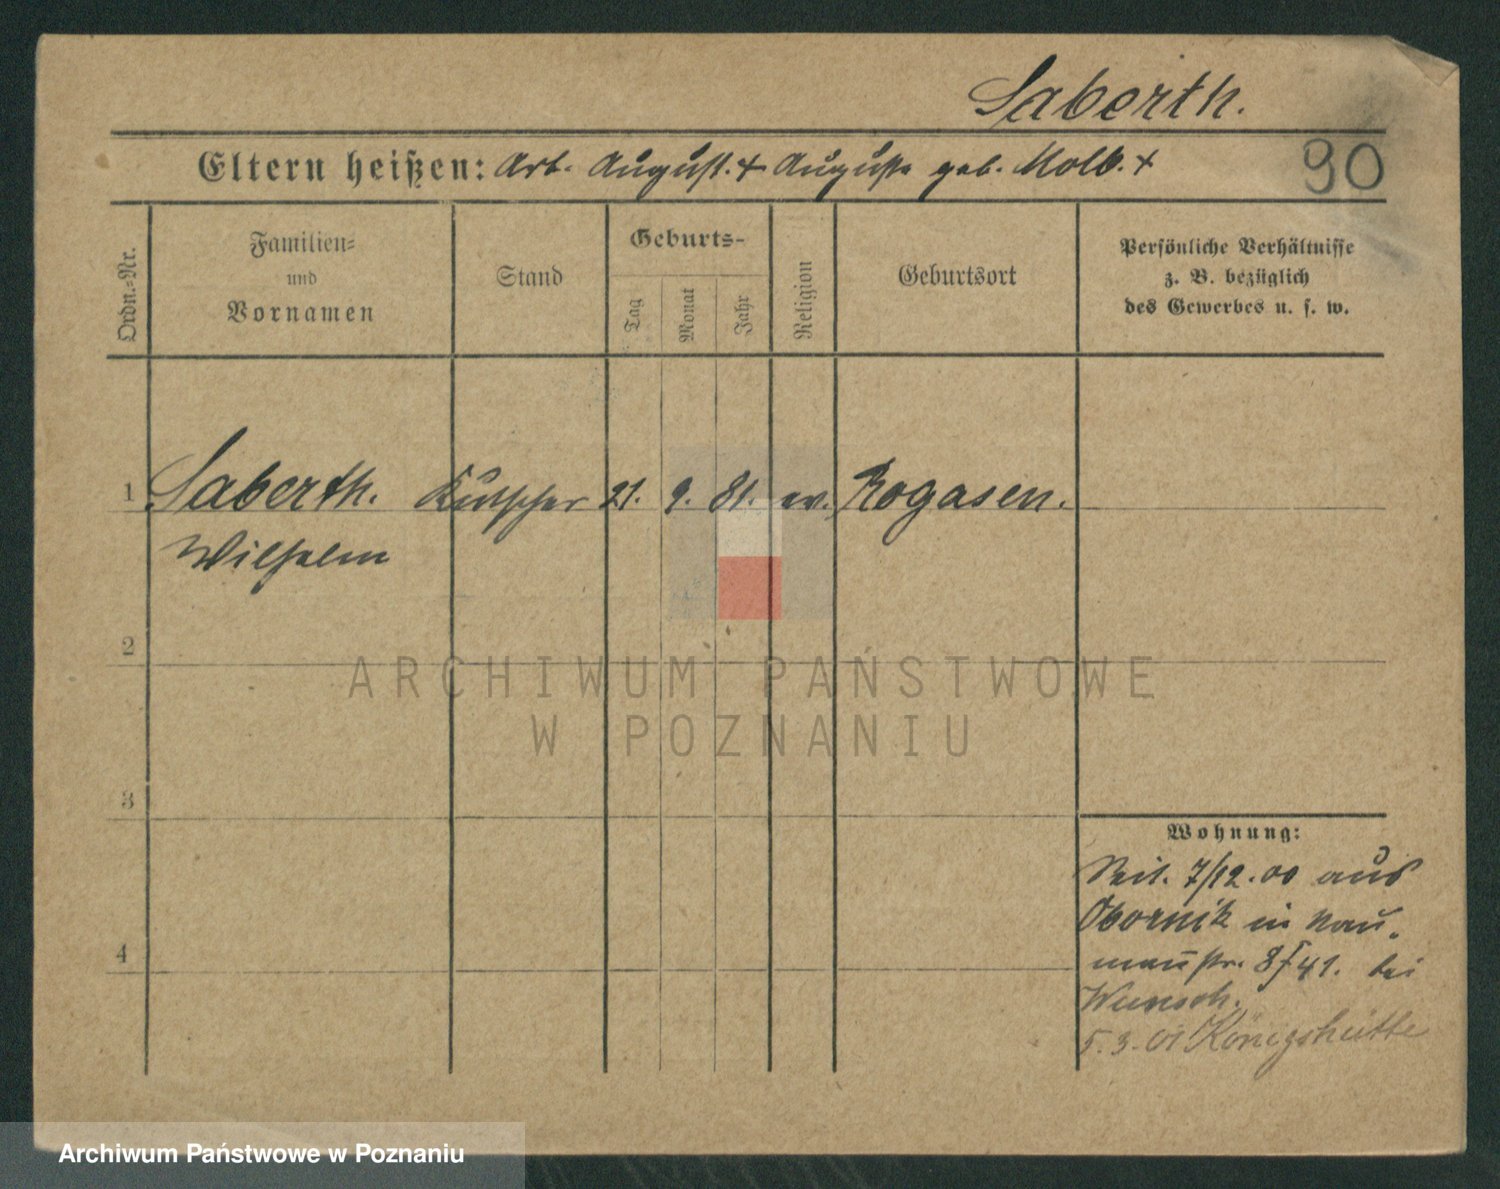 Saberth.
Eltern heißen: Arb. August. + Auguste geb. Molb. +
90
Ordn.=Nr.
Familien=
und
Vornamen
Stand
Geburts=
Tag
Monat
Jahr
Religion
Geburtsort
Persönliche Verhältnisse
z. B. bezüglich
des Gewerbes u. s. w.
1 Saberth. Kutscher 21. 9. 81. ev. Rogasen.
Wilhelm
2
ARCHIWUM PAŃSTWOWE
W POZNANIU
3
Wohnung:
Seit. 7/12.00 aus
Obornik in Nau-
4
mannstr. 8 41. bei
Wunsch.
5.3.01 Königshütte
Archiwum Państwowe w Poznaniu